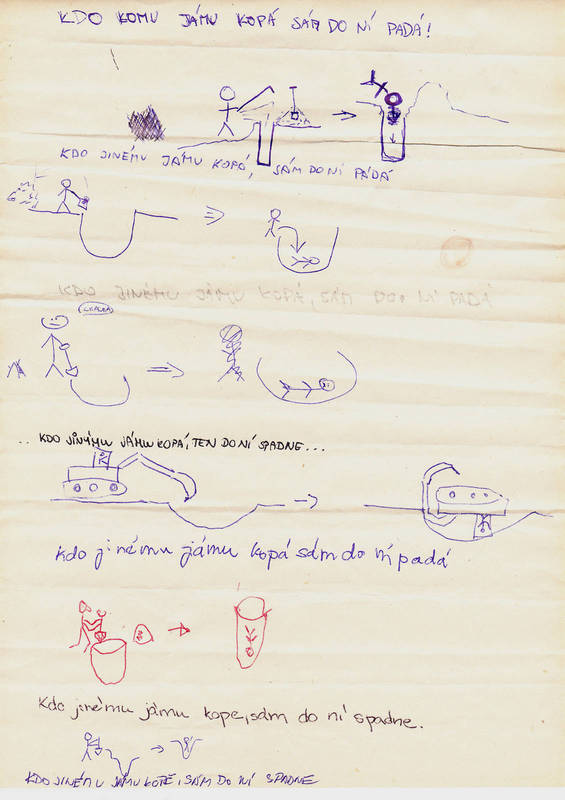 KDO KOMU JÁMU KOPÁ SÁM DO NÍ PADÁ!
KDO JINÉMU JÁMU KOPÁ, SÁM DO NÍ PÁDÁ
KDO JINÉMU JÁMU KOPÁ, SÁM DO NÍ PADÁ
.. KDO JINÝMU JÁMU KOPÁ, TEN DO NÍ SPADNE...
Kdo jinému jámu kopá sám do ní padá
Kdo jinému jámu kope, sám do ní spadne.
KDO JINÉMU JÁMU KOPE, SÁM DO NÍ SPADNE